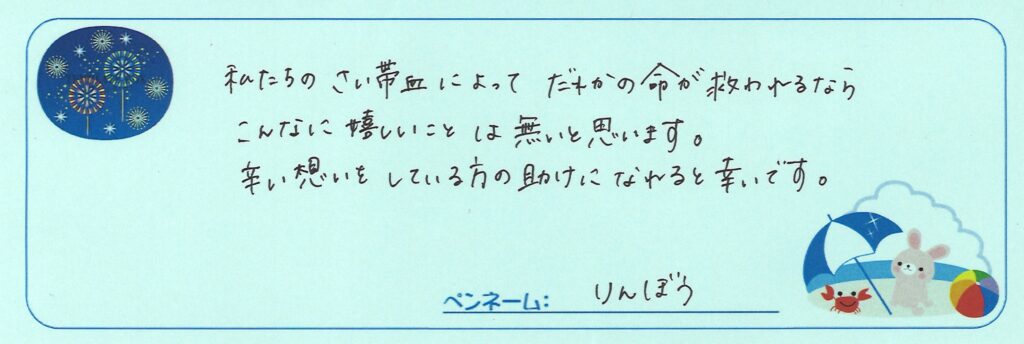 私たちの さい帯血によって だれかの命が救われるなら
こんなに嬉しいことは無いと思います。
辛い想いをしている方の助けになれると幸いです。
ペンネーム: りんぼう